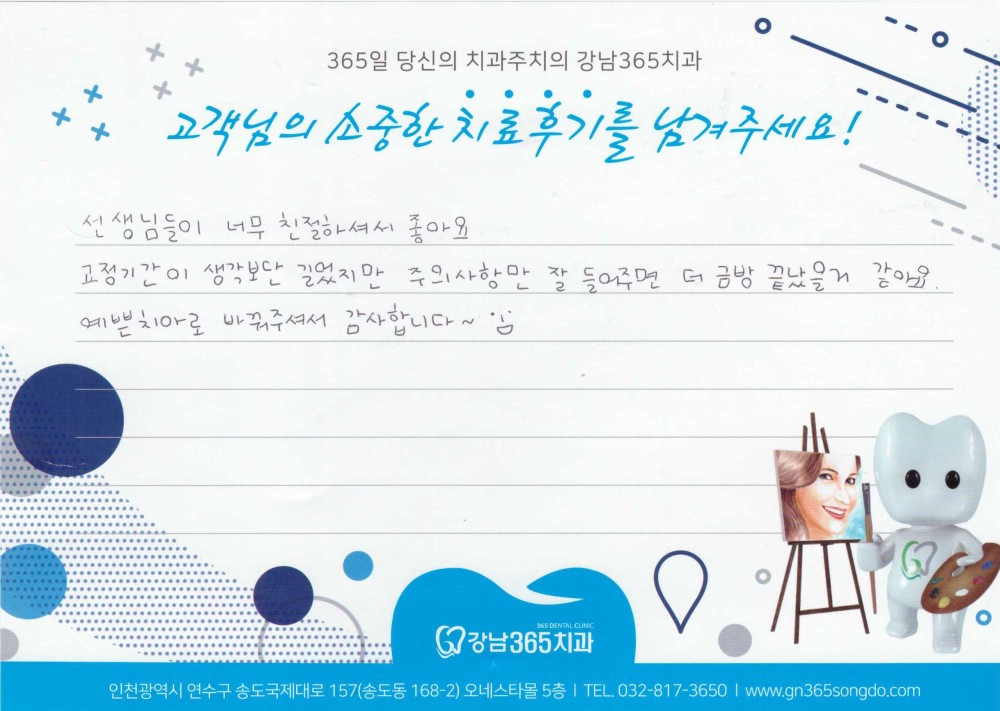 365일 당신의 치과주치의 강남365치과
고객님의 소중한 치료후기를 남겨주세요!
선생님들이 너무 친절하셔서 좋아요
교정기간이 생각보단 길었지만 주의사항만 잘 들어주면 더 금방 끝났을거 같아요.
예쁜치아로 바꿔주셔서 감사합니다~
365 DENTAL CLINIC
강남365치과
인천광역시 연수구 송도국제대로 157(송도동 168-2) 오네스타몰 5층 | TEL. 032-817-3650 | www.gn365songdo.com